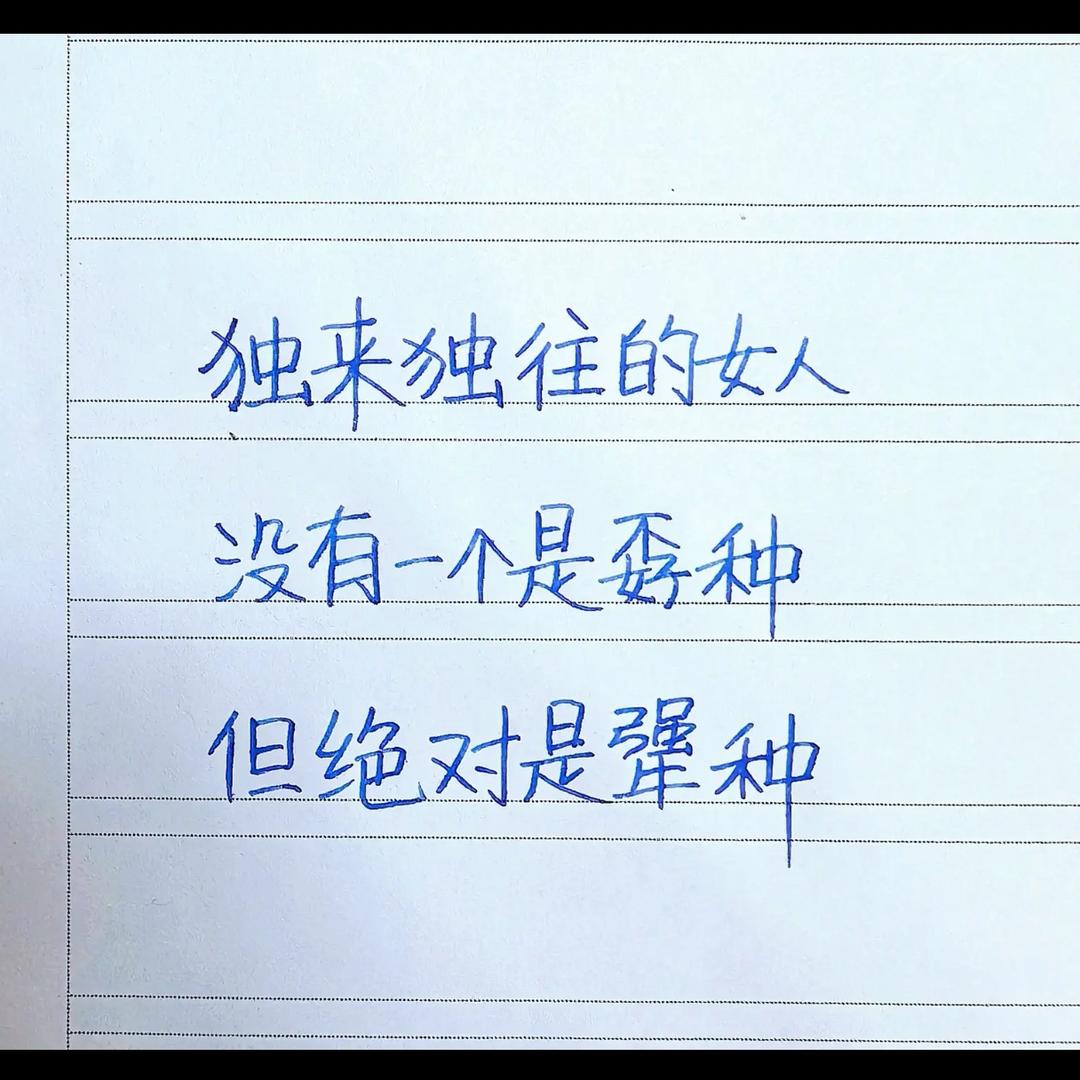 独来独往的女人
没有一个是孬种
但绝对是犟种